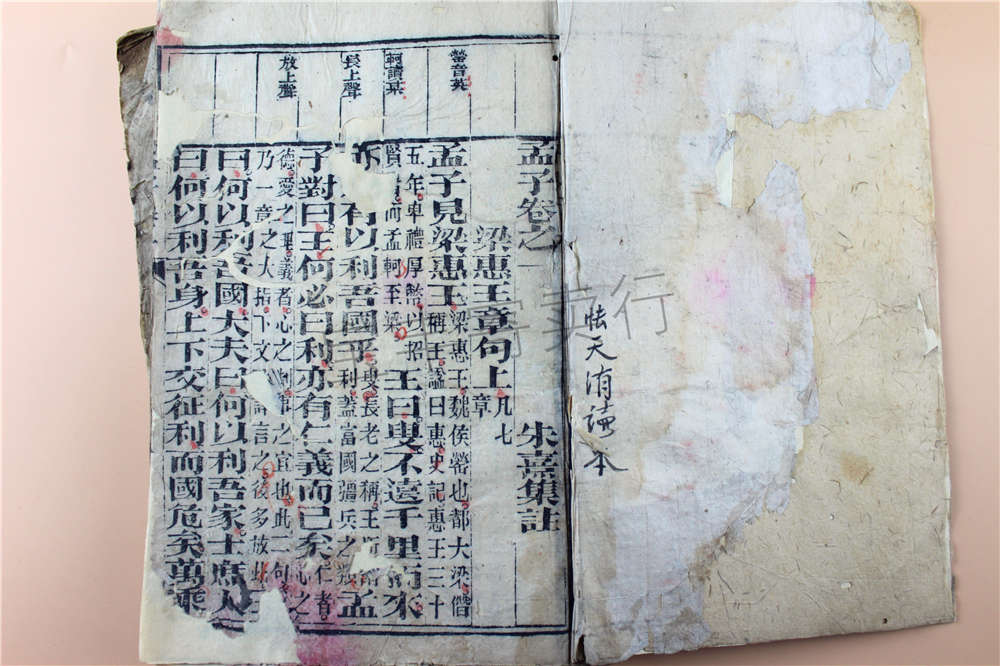 天洧讀本
罃音英
軻讀某
長上聲
放上聲
孟子卷之一 朱熹集註
梁惠王章句上 凡七章
孟子見梁惠王 梁惠王魏侯罃也都大梁僭稱王謚曰惠史記惠王三十
五年卑禮厚幣以招賢者而孟軻至梁 王曰叟不遠千里而來
亦有以利吾國乎 叟長老之稱王所謂利蓋富國彊兵之類 孟
子對曰王何必曰利亦有仁義而已矣 仁者心之
德愛之理義者心之制事之宜也此二句
乃一章之大指下文詳言之後多放此 王
曰何以利吾國大夫曰何以利吾家士庶人
曰何以利吾身上下交征利而國危矣萬乘
寄卖行